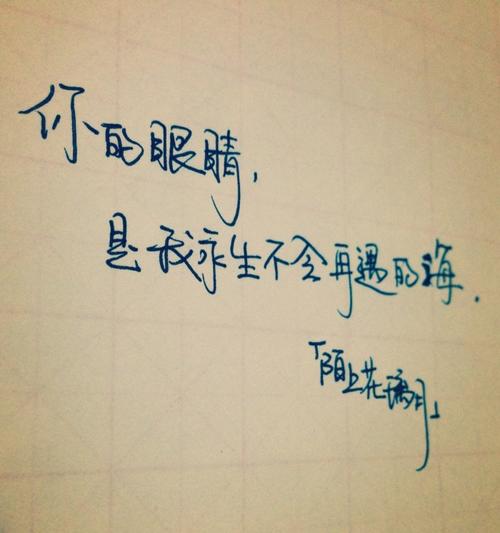 你的眼睛,
是我永生不会再遇的海.
「陌上花璃月」